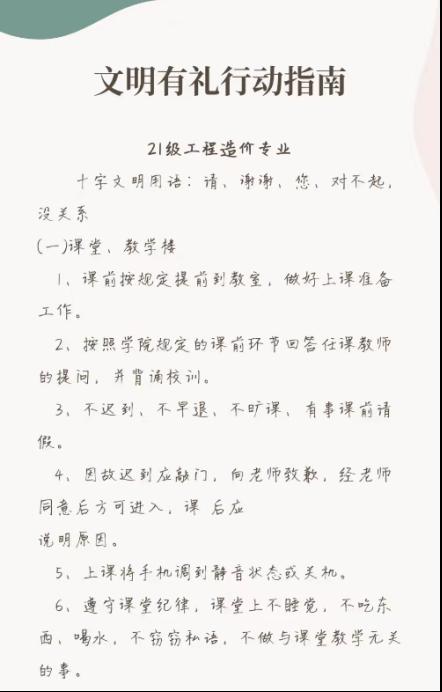 文明有礼行动指南
21级工程造价专业
十字文明用语：请、谢谢、您、对不起，
没关系
(一)课堂、教学楼
1、课前按规定提前到教室，做好上课准备
工作。
2、按照学院规定的课前环节回答任课教师
的提问，并背诵校训。
3、不迟到、不早退、不旷课、有事课前请
假。
4、因故迟到应敲门，向老师致歉，经老师
同意后方可进入，课 后应
说明原因。
5、上课将手机调到静音状态或关机。
6、遵守课堂纪律，课堂上不睡觉，不吃东
西、喝水，不窃窃私语，不做与课堂教学无关
的事。